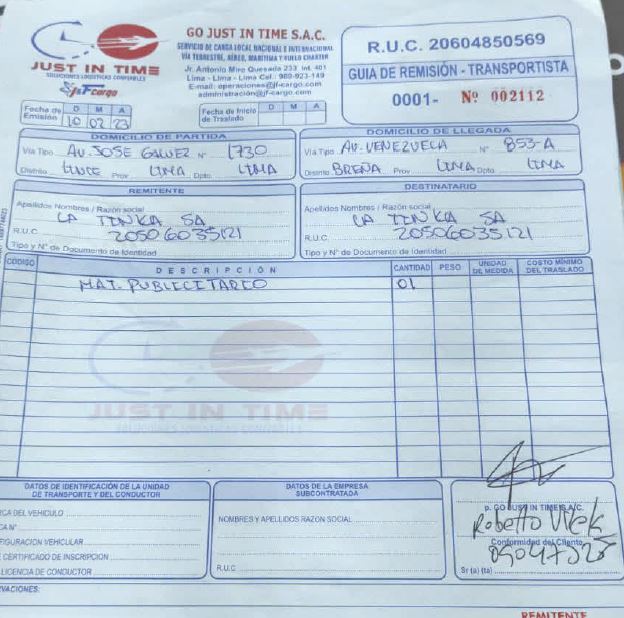 JUST IN TIME
SOLUCIONES LOGISTICAS CONFIABLES
J&Fcargo
GO JUST IN TIME S.A.C.
SERVICIO DE CARGA LOCAL NACIONAL E INTERNACIONAL
VÍA TERRESTRE, AÉREO, MARÍTIMA Y VUELO CHARTER
Jr. Antonio Miro Quesada 233 Int. 401
Lima - Lima - Lima Cel.: 980-923-149
E-mail: operaciones@jf-cargo.com
administración@jf-cargo.com
R.U.C. 20604850569
GUIA DE REMISIÓN - TRANSPORTISTA
0001- Nº 002112
Fecha de Emisión D M A
10 02 23
Fecha de Inicio de Traslado D M A
DOMICILIO DE PARTIDA
Vía Tipo AV. JOSE GALVEZ Nº 1730
Distrito LINCE Prov LIMA Dpto. LIMA
DOMICILIO DE LLEGADA
Vía Tipo AV. VENEZUELA Nº 853-A
Distrito BREÑA Prov LIMA Dpto LIMA
REMITENTE
Apellidos Nombres / Razón social
LA TINKA SA
R.U.C. 20506035121
Tipo y Nº de Documento de Identidad
DESTINATARIO
Apellidos Nombres / Razón social
LA TINKA SA
R.U.C. 20506035121
Tipo y Nº de Documento de Identidad
CÓDIGO DESCRIPCIÓN CANTIDAD PESO UNIDAD DE MEDIDA COSTO MÍNIMO DEL TRASLADO
MAT. PUBLICITARIO 01
JUST IN TIME
SOLUCIONES LOGISTICAS CONFIABLES
DATOS DE IDENTIFICACIÓN DE LA UNIDAD
DE TRANSPORTE Y DEL CONDUCTOR
RCA DEL VEHICULO
CA Nº
FIGURACION VEHICULAR
CERTIFICADO DE INSCRIPCION
LICENCIA DE CONDUCTOR
DATOS DE LA EMPRESA
SUBCONTRATADA
NOMBRES Y APELLIDOS RAZON SOCIAL
R.U.C
p. GO JUST IN TIME S.A.C.
Robetto
Conformidad del Cliente
Sr (a) (ta)
VACIONES:
REMITENTE